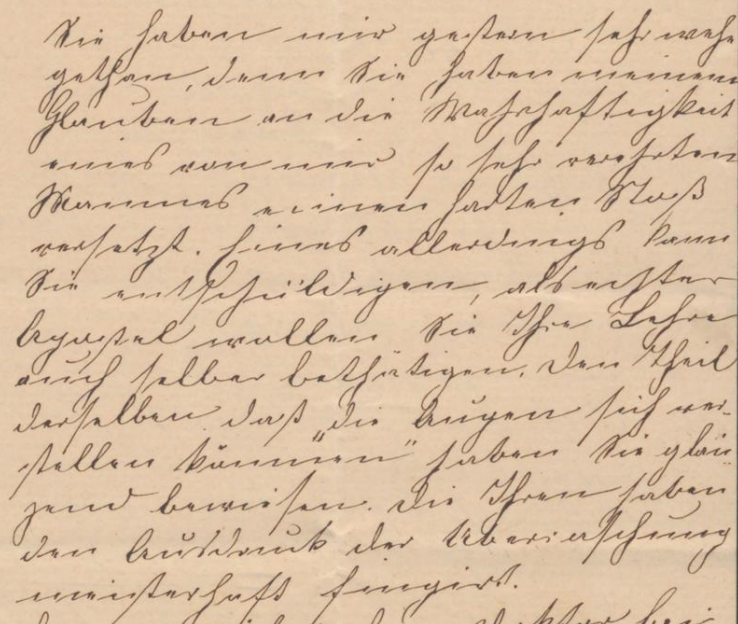 Sie haben mir gestern sehr wehe
gethan, denn Sie haben meinem
Glauben an die Wahrhaftigkeit
eines von mir so sehr verehrten
Mannes einen harten Stoß
versetzt. Eines allerdings kann
Sie entschüldigen, als echter
Apostel wollen Sie Ihre Lehre
auch selber bethätigen. Den Theil
derselben daß „die Augen sich ver-
stellen können" haben Sie glän-
zend bewiesen. Die Ihren haben
den Ausdruck der Überraschung
meisterhaft fingirt.